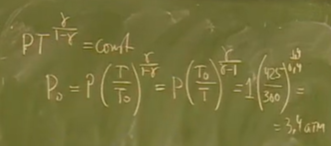 PT^{γ/(1-γ)} = const
P₀ = P(T/T₀)^{γ/(1-γ)} = P(T₀/T)^{γ/(γ-1)} = 1(425/360)^{} =
= 3,4 атм